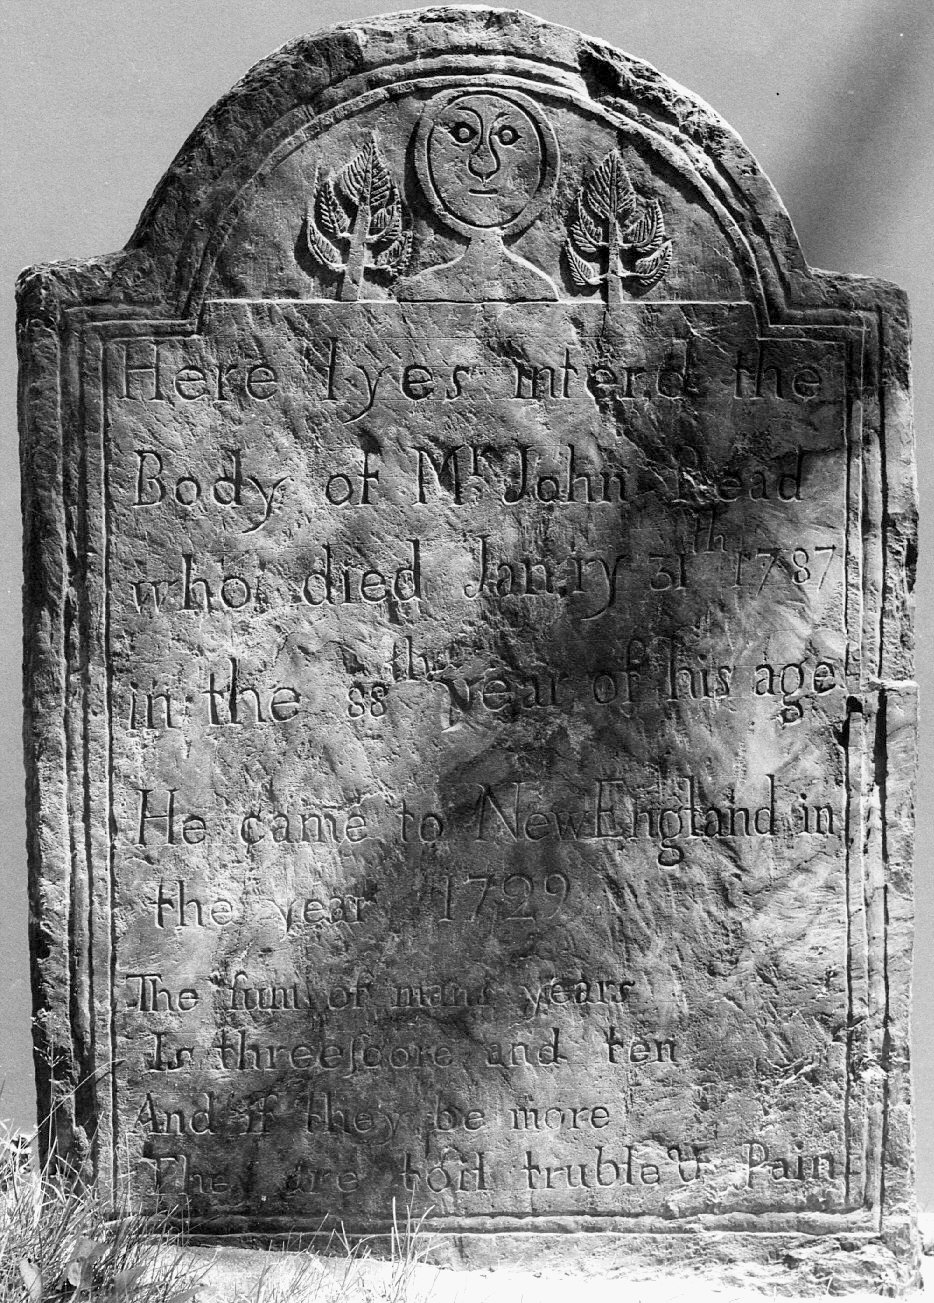 Here lyes interd the
Body of Mr. John Read
who died Janry 31th 1787
in the 88th year of his age
He came to New England in
the year 1729
The ſum of mans years
Is threeſcore and ten
And if they be more
They are toil truble & Pain